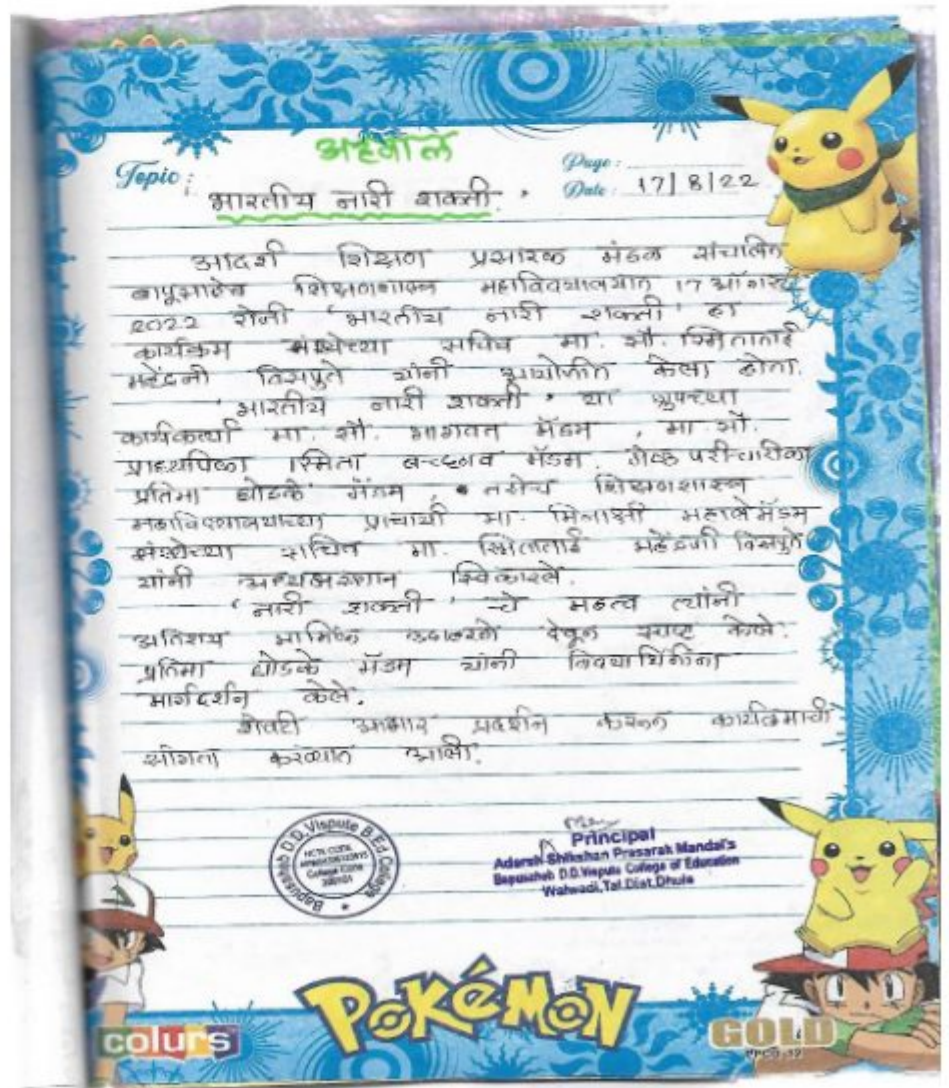 अहवाल
Topic :
Page :
भारतीय नारी शक्ती.
Date : 17/8/22
आदर्श शिक्षण प्रसारक मंडळ संचलित
बापूसाहेब शिक्षणशास्त्र महाविद्यालयात 17 ऑगस्ट
2022 रोजी 'भारतीय नारी शक्ती' हा
कार्यक्रम संस्थेच्या सचिव मा. सौ. स्मिताताई
महेंद्रजी विसपुते यांनी आयोजीत केला होता.
'भारतीय नारी शक्ती' या ग्रुपच्या
कार्यकर्त्या मा. सौ. भागवत मॅडम , मा सौ.
प्राध्यपिका स्मिता बच्छाव मॅडम. परीचारीका
प्रतिमा घोडके मॅडम , तसेच शिक्षणशास्त्र
महाविद्यालयाच्या प्राचार्या मा. मिनाक्षी महालेमॅडम
संस्थेच्या सचिव मा. स्मिताताई महेंद्रजी विसपुते
यांनी अध्यक्षस्थान स्विकारले.
'नारी शक्ती' चे महत्व त्यांनी
अतिशय मार्मिक उदाहरणे देवून स्पष्ट केले.
प्रतिमा घोडके मॅडम यांनी विद्यार्थिनींना
मार्गदर्शन केले.
शेवटी आभार प्रदर्शन करून कार्यक्रमाची
सांगता करण्यात आली.
Bapusaheb D.D.Vispute B.Ed College
NCTE CODE
College Code
Principal
Adarsh Shikshan Prasarak Mandal's
Bapusaheb D.D.Vispute College of Education
Walwadi,Tal.Dist.Dhule
POKéMON
colurs
GOLD